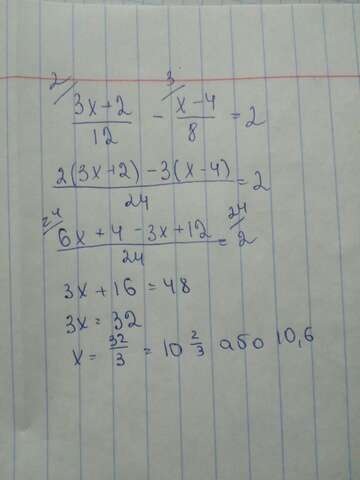 2 3
(3x+2)/12 - (x-4)/8 = 2
(2(3x+2) - 3(x-4))/24 = 2
24 24
(6x + 4 - 3x + 12)/24 = 2
3x + 16 = 48
3x = 32
x = 32/3 = 10 2/3 або 10,6